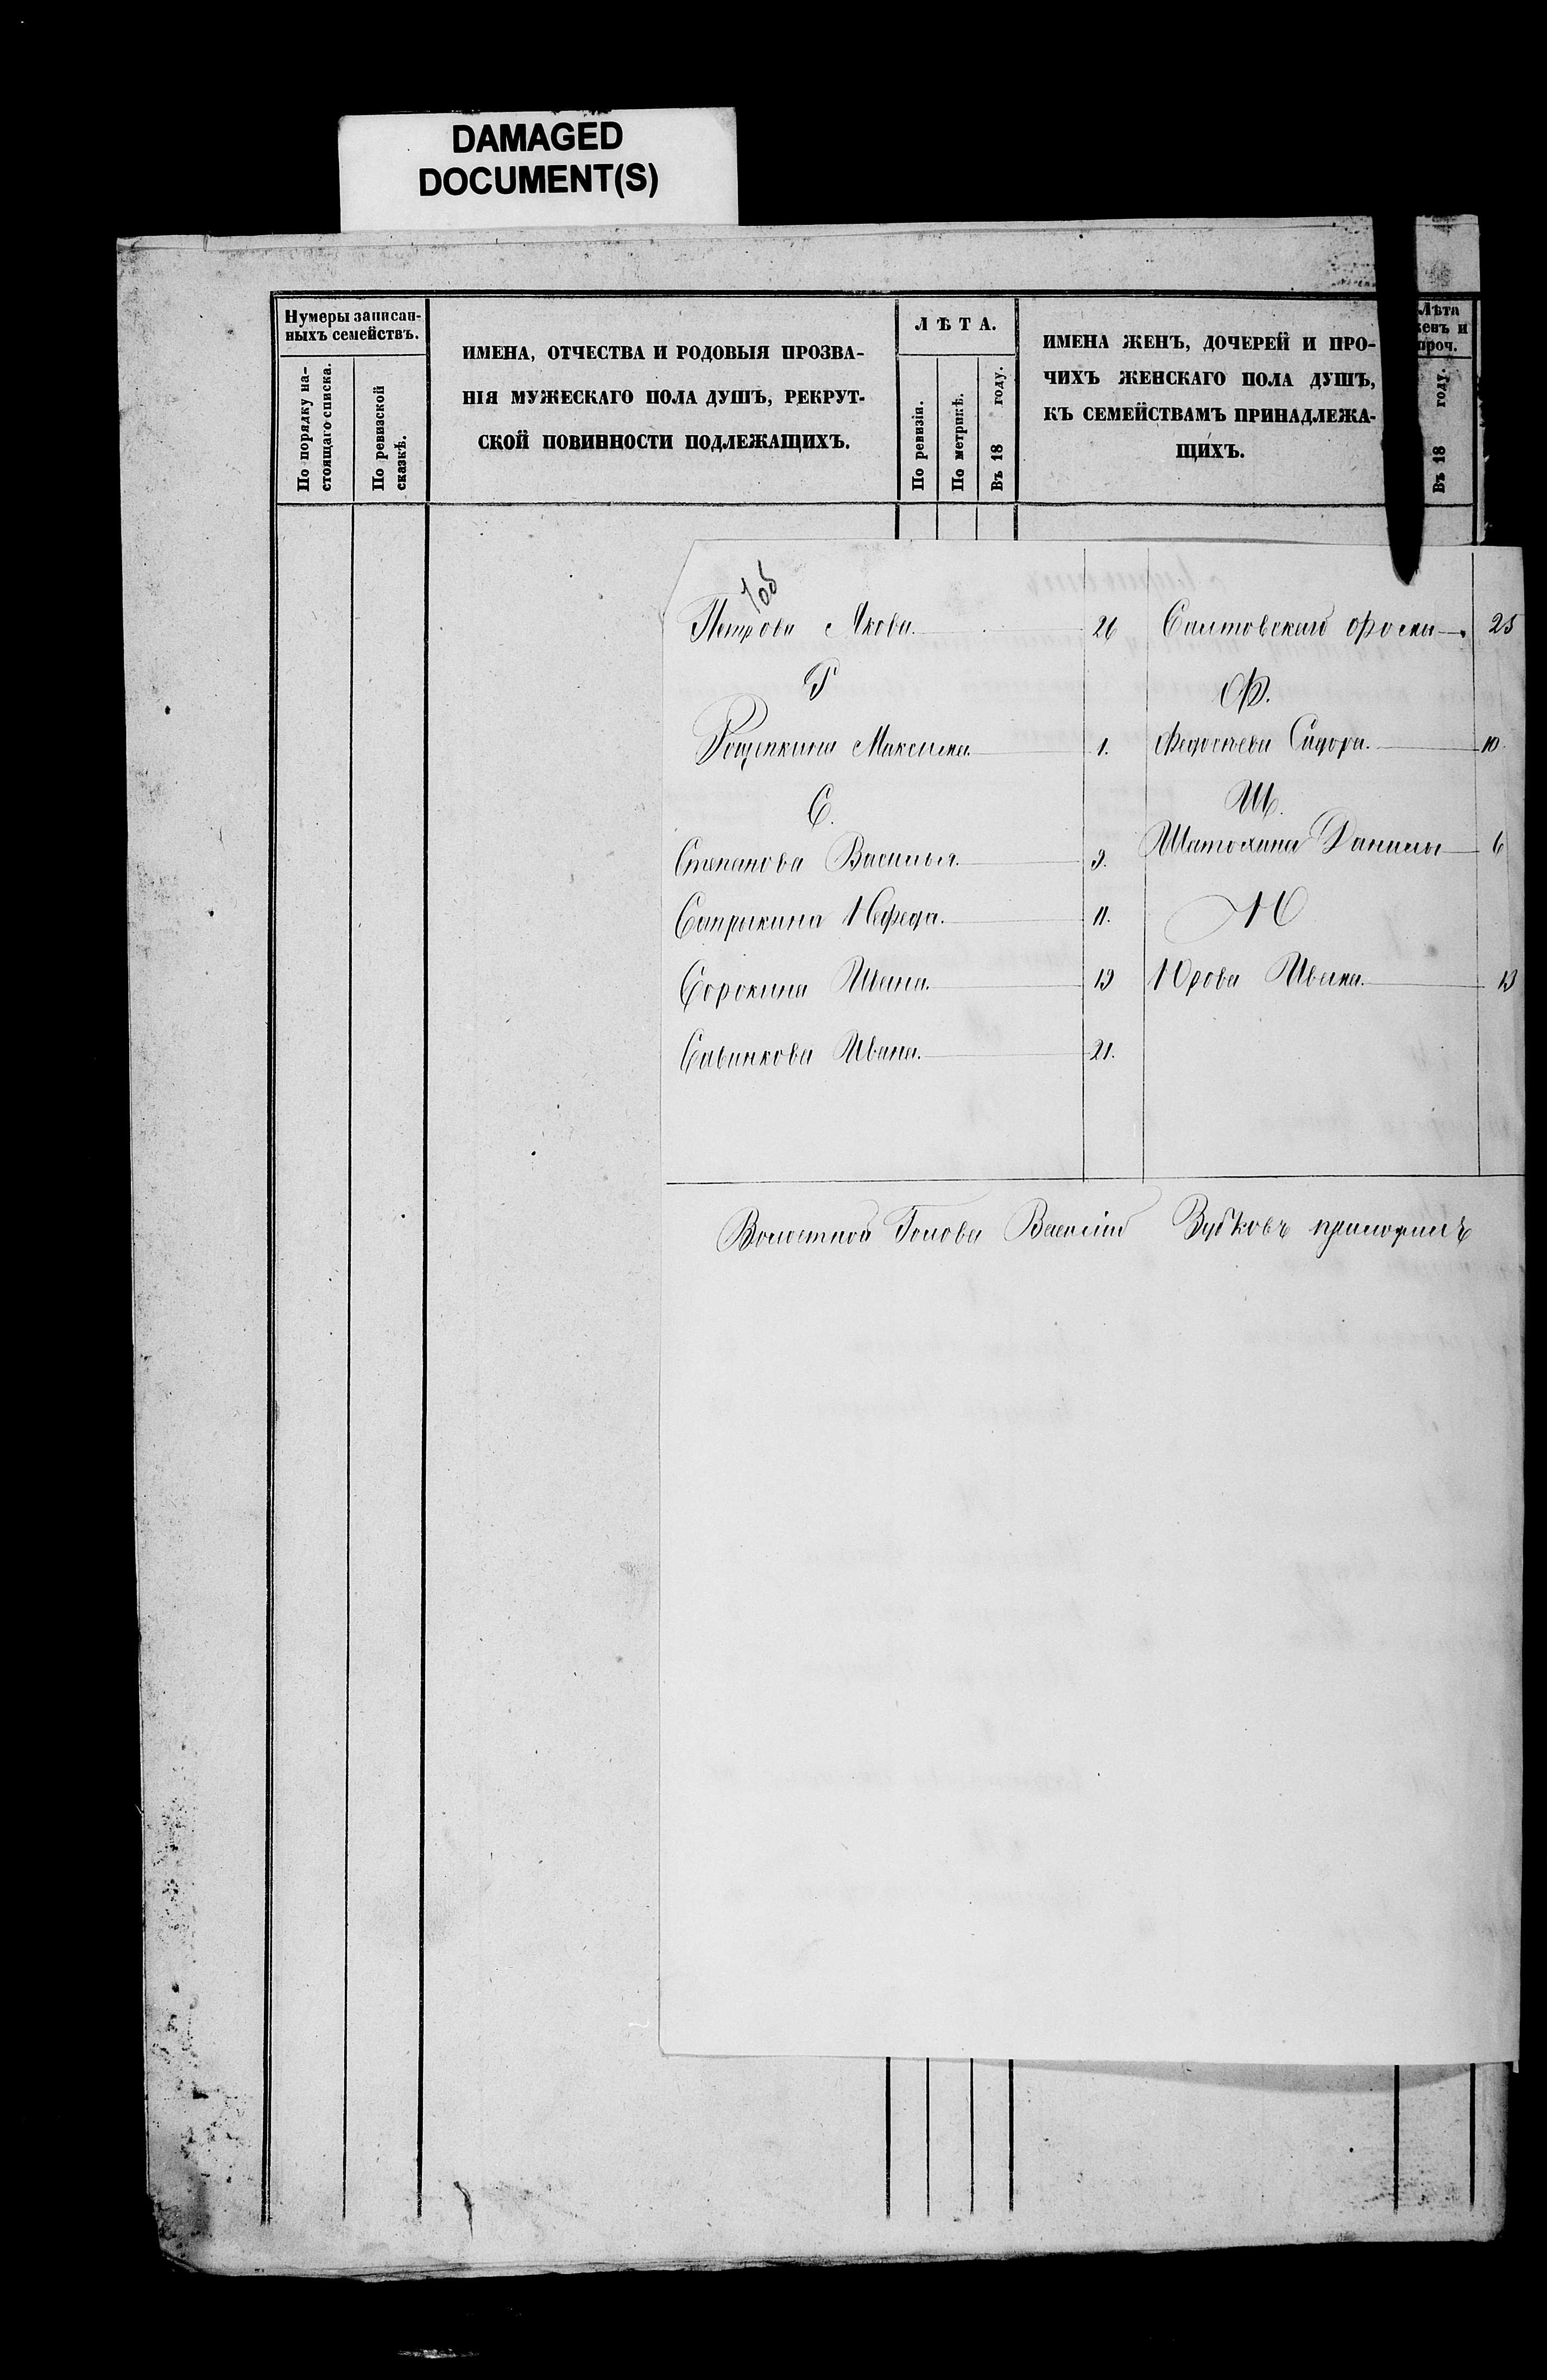 DAMAGED
DOCUMENT(S)
Нумеры записан-
ныхъ семействъ.
По порядку на-
стоящаго списка.
По ревизской
сказкѣ.
ИМЕНА, ОТЧЕСТВА И РОДОВЫЯ ПРОЗВА-
НІЯ МУЖЕСКАГО ПОЛА ДУШЪ, РЕКРУТ-
СКОЙ ПОВИННОСТИ ПОДЛЕЖАЩИХЪ.
ЛѢТА.
По ревизіи.
По метрикѣ.
Въ 18 году.
ИМЕНА ЖЕНЪ, ДОЧЕРЕЙ И ПРО-
ЧИХЪ ЖЕНСКАГО ПОЛА ДУШЪ,
КЪ СЕМЕЙСТВАМЪ ПРИНАДЛЕЖА-
ЩИХЪ.
Лѣта
женъ и
проч.
Въ 18 году.
Петрова Якова. 26
Р
Максима. 1.
С.
Степанова Василья. 9.
Сапрыкина Нефеда. 11.
Сорокина Ивана. 19
Савинкова Ивана. 21.
Салтовскаго 25
Ф.
Федосѣева Сидора. 10.
Ш.
Шатохина Данилы 6
Ю
Юрова Ивана. 13
Волостной Голова Василій Зубковъ приложилъ